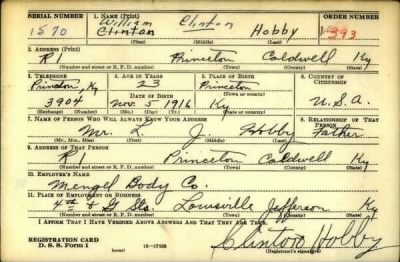 SERIAL NUMBER 1. NAME (Print) ORDER NUMBER
William
1570 Clinton Clinton Hobby V393
(First) (Middle) (Last)
2. ADDRESS (Print)
R1 Princeton Caldwell Ky
(Number and street or R. F. D. number) (Town) (County) (State)
3. TELEPHONE 4. AGE IN YEARS 5. PLACE OF BIRTH 6. COUNTRY OF CITIZENSHIP
Princeton, Ky 23 Princeton
DATE OF BIRTH (Town or county)
3904 Nov. 5, 1916 Ky U.S.A.
(Exchange) (Number) (Mo.) (Day) (Yr.) (State or country)
7. NAME OF PERSON WHO WILL ALWAYS KNOW YOUR ADDRESS 8. RELATIONSHIP OF THAT PERSON
Mr. L. J. Hobby Father
(Mr., Mrs., Miss) (First) (Middle) (Last)
9. ADDRESS OF THAT PERSON
R1 Princeton Caldwell Ky
(Number and street or R. F. D. number) (Town) (County) (State)
10. EMPLOYER'S NAME
Mengel Body Co.
11. PLACE OF EMPLOYMENT OR BUSINESS
4th & G Sts. Louisville Jefferson Ky
(Number and street or R. F. D. number) (Town) (County) (State)
I AFFIRM THAT I HAVE VERIFIED ABOVE ANSWERS AND THAT THEY ARE TRUE.
REGISTRATION CARD
D. S. S. Form 1 (over) 16—17105 Clinton Hobby
(Registrant's signature)